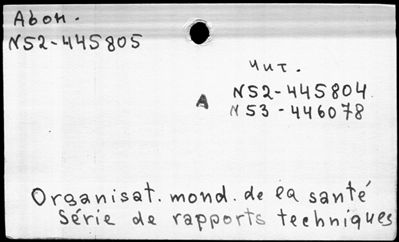 Абон.
N52-445805
Чит.
N52-445804
A
N53-446078
Organisat. mond. de la santé
Série de rapports techniques